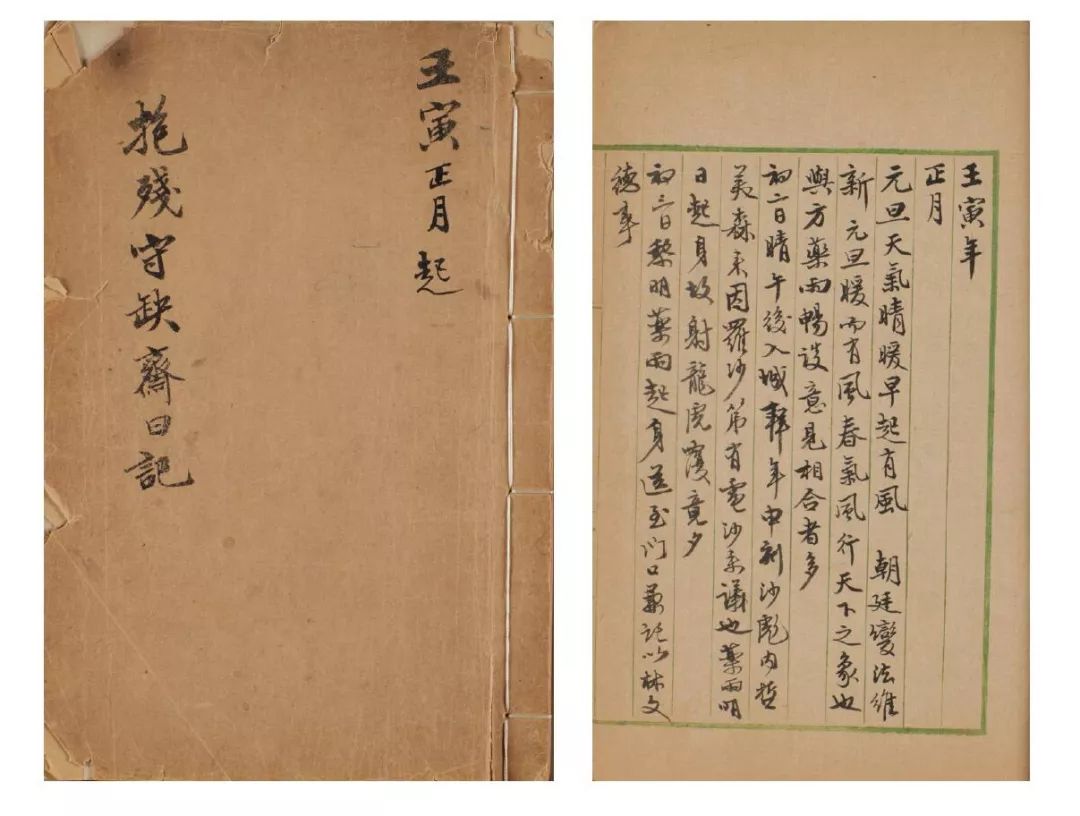 壬寅正月起
抱殘守缺齋日記
壬寅年
正月
元旦天氣晴暖早起有風 朝廷變法維
新 元旦暖而有風春氣風行天下之象也
與方藥雨暢談意見相合者多
初二日晴午後入城拜年申刻沙彪內哲
美森來因羅沙第有電沙來議也藥雨明
日起身故射龍虎覆竟夕
初三日黎明藥雨起身送至門口兼託以林文
德事